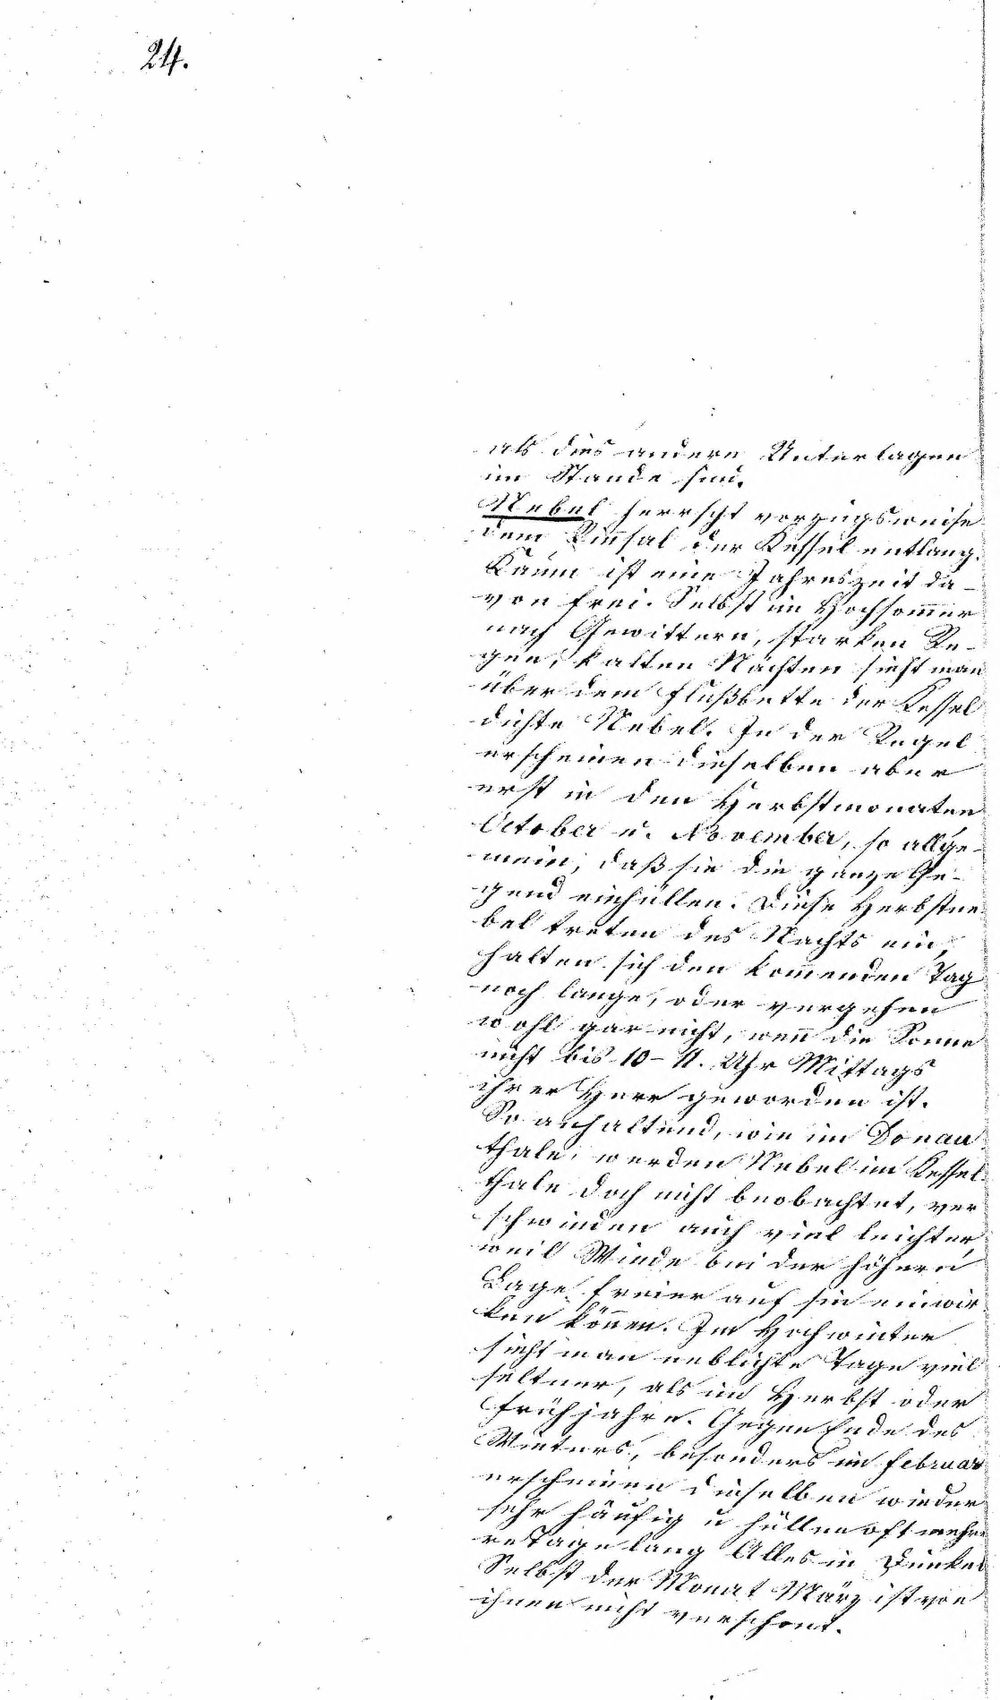 24.
als dies andere Unterlagen
im Stande sind.
Nebel herrscht vorzugsweise
dem Rinsal der Kessel entlang.
Kaum ist eine Jahreszeit da-
von frei. Selbst im Hochsommer
nach Gewittern, starken Re-
gen, kalten Nächten sieht man
über dem Flußbette der Kessel
dichte Nebel. In der Regel
erscheinen dieselben aber
erst in den Herbstmonaten
October u. November, so allge-
mein, daß sie die ganze Ge-
gend einhüllen. Diese Herbstne-
bel treten des Nachts ein,
halten sich den kommenden Tag
noch lange, oder vergehen
wohl gar nicht, wenn die Sonne
nicht bis 10-11. Uhr Mittags
ihrer Herr geworden ist.
So anhaltend, wie im Donau
thale, werden Nebel im Kessel-
thale doch nicht beobachtet, ver
schwinden auch viel leichter,
weil Winde bei der höhern
Lage freier auf sie einwir
ken können. Im Hochwinter
sieht man neblichte Tage viel
seltner, als im Herbst oder
Frühjahre. Gegen Ende des
Winters, besonders im Februar
erscheinen dieselben wieder
sehr häufig u hüllen oft mehre
re Tage lang Alles in Dunkel
Selbst der Monat März ist von
ihnen nicht verschont.